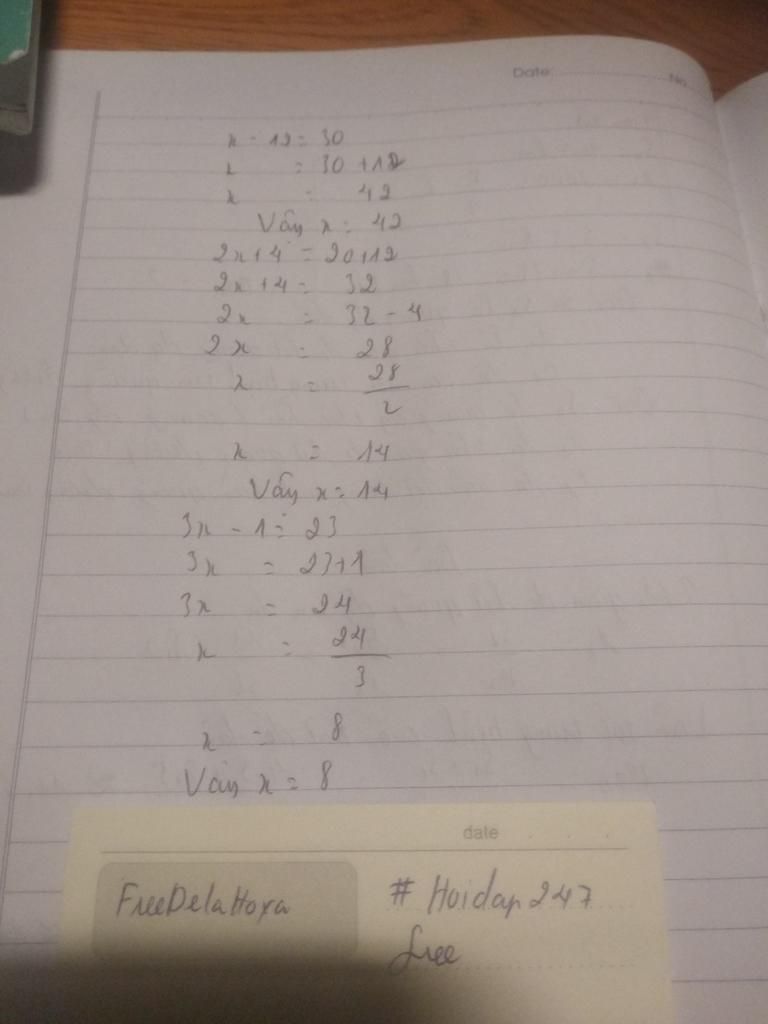 Date: No
x - 12 = 30
x = 30 + 12
x = 42
Vậy x = 42
2x + 4 = 20 + 12
2x + 4 = 32
2x = 32 - 4
2x = 28
x = 28/2
x = 14
Vậy x = 14
3x - 1 = 23
3x = 23 + 1
3x = 24
x = 24/3
x = 8
Vậy x = 8
date
FreeDelaHoya # Hoidap247
free